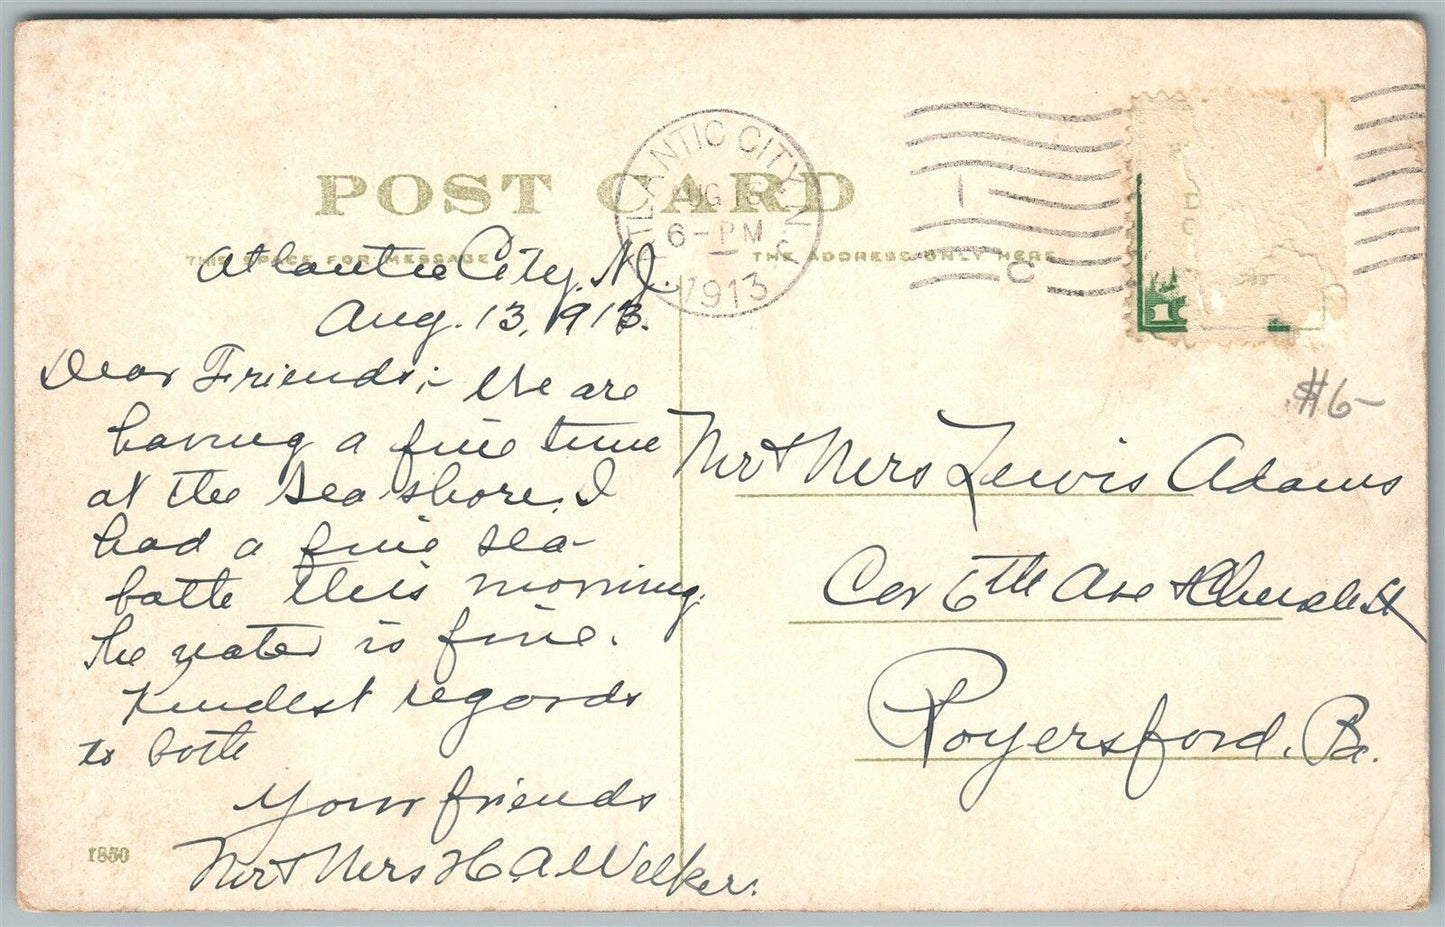 POST CARD
THIS SPACE FOR MESSAGE
THE ADDRESS ONLY HERE
ATLANTIC CITY, N.J.
AUG 16
6-PM
1913
C
1
#6-
Atlantic City, NJ.
Aug. 13, 1913.
Dear Friends:- We are
having a fine time
at the Sea shore. I
had a fine sea-
bathe this morning.
The water is fine.
Kindest regards
to both
Your friends
Mr & Mrs H. A. Welker.
1850
Mr & Mrs Lewis Adams
Cor 6th Ave & Church St
Royersford, Pa.